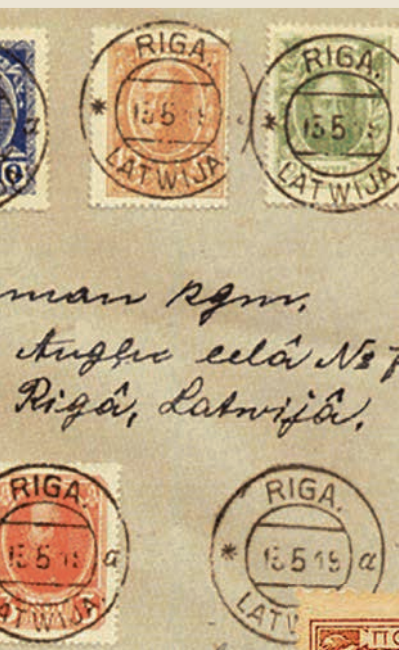 RIGA.
* 15 5 19
LATWIJA.
RIGA.
* 15 5 19
LATWIJA.
a
man kgm.
celâ No 7
Rigâ, Latwijâ.
RIGA.
15 5 19 a
LATWIJA
RIGA.
* 15 5 19 a
LATW
ПО